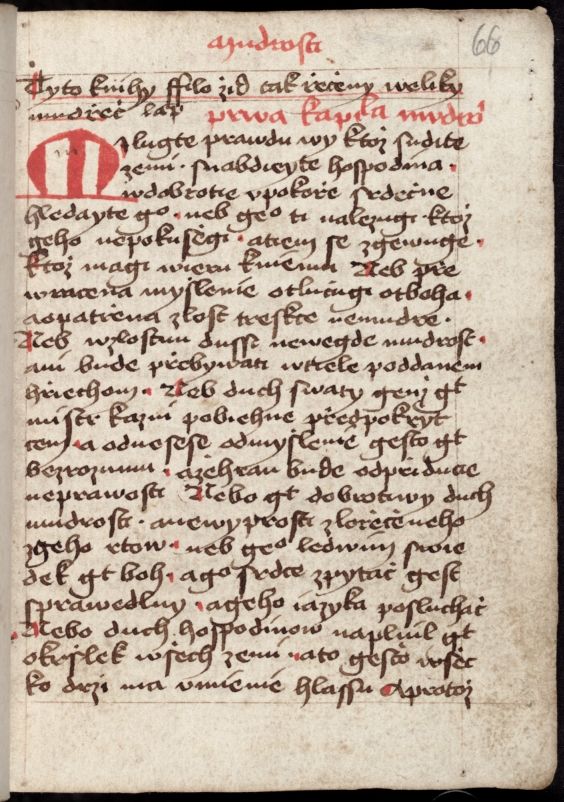 Mudrosti
66
Tyto knihy ffilo żid tak rżećeny weliky
mudrżeć lap̃ prwa kapi͠la mudroͨ
Milugte prawdu wy ktoż sudite
zemi · snabdieyte hospodina ·
wdobrotie vpokorże srdećne
hledayte go · neb geͦ ti nalezugi · ktoż
geho nepokusẽgi · atiem se zgewuge ·
ktoż magi wieru kniemu Neb prże
wracena myslenie otlućugi otboha ·
aopatrżena zlost treskce nemudre ·
Neb wzlostnu dussi newegde mudrost ·
ani bude przebywati wtiele poddanem
hrziechom · Neb duch swaty genż gt
mistr kazni pobiehne przedpokryt
cem a odnesese odmyslenie gesto gt
bezrozumu · azehran bude odprziducie
neprawosti Nebo gt dobrotiwy duch
mudrosti · anewyprosti zlorżećeneho
zgeho rtow · neb geͦ ledwim swie
dek gt boh · agͦ srdce zpytać gest
sprawedlny · ageho iazyka posluchać
Nebo duch hospodinow naplnil gt
okrslek wsech zemi · ato gesto wsec
ko drżi ma vmienie hlassu Aprotoż